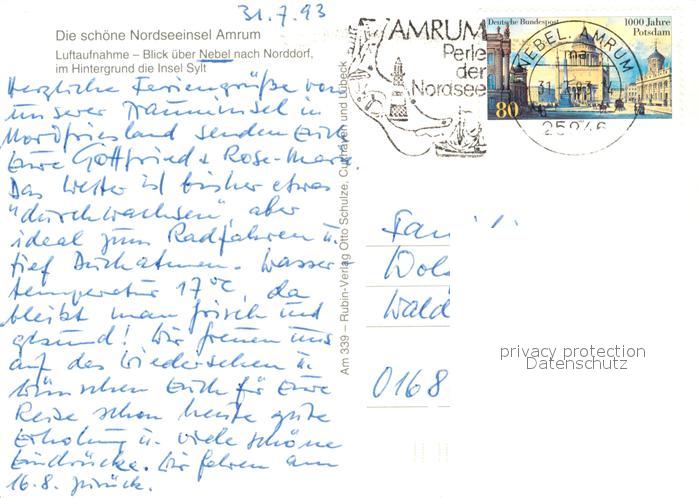 31.7.93
Die schöne Nordseeinsel Amrum
Luftaufnahme – Blick über Nebel nach Norddorf,
im Hintergrund die Insel Sylt
Herzliche Feriengrüße von
unserer Trauminsel in
Nordfriesland senden Euch
Eure Gottfried & Rose-Marie.
Das Wetter ist bisher etwas
"durchwachsen", aber
ideal zum Radfahren u.
tief Durchatmen. Wasser-
temperatur 17°C, da
bleibt man frisch und
gesund! Wir freuen uns
auf das Wiedersehen u.
wünschen Euch für Eure
Reise schon heute gute
Erholung u. viele schöne
Eindrücke. Wir fahren am
16.8. zurück.
Am 339 – Rubin-Verlag Otto Schulze, Cuxhaven und Lübeck
AMRUM
Perle
der
Nordsee
Deutsche Bundespost
1000 Jahre
Potsdam
80
NEBEL, AMRUM
ma
25946
Fam
Wald
0168
privacy protection
Datenschutz